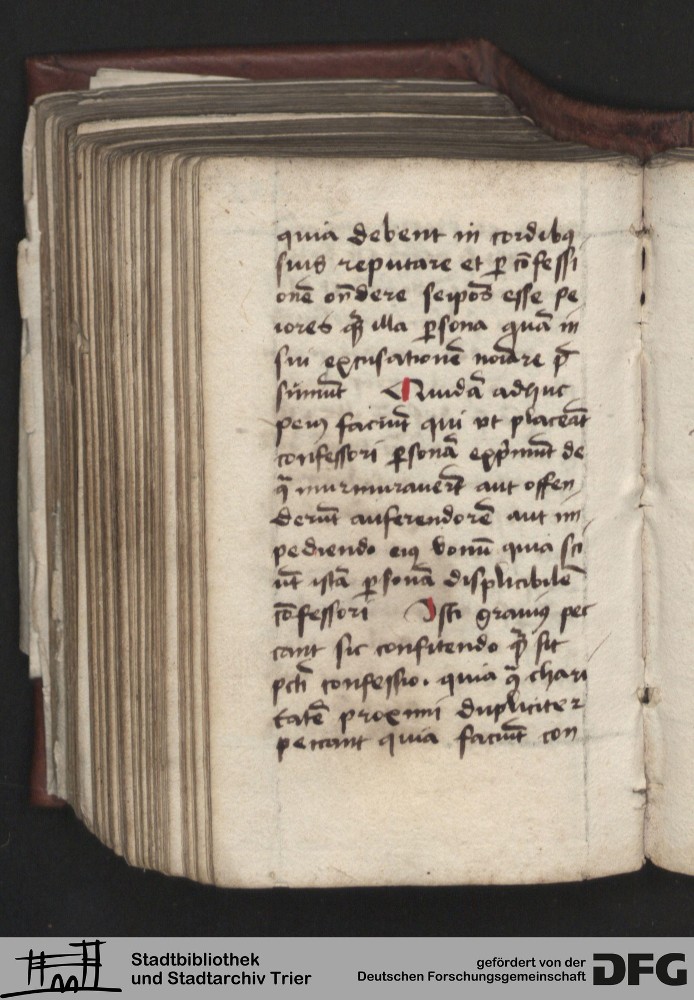 quia debent in cordibꝰ
suis reputare et ꝑ cōfessi
onē oñdere seipōs esse pe
iores q̄ȝ illa ꝑsona quā in
sui excusationē noīare p̄
sūmūt Quidā adhuc
peiꝰ faciūt qui vt placeāt
confessori ꝑsonā exp̄mūt de
q̄ murmuraverūt aut offen
derūt auferendo rē aut im
pediendo eiꝰ bonū quia sci
ūt istā ꝑsonā displicibilē
cōfessori Isti graviꝰ pec
cant sic confitendo q̄ȝ sit
pctī confessio. quia q̄ chari
tatē proximi dupliciter
peccant quia faciūt con
Stadtbibliothek
und Stadtarchiv Trier
gefördert von der
Deutschen Forschungsgemeinschaft
DFG